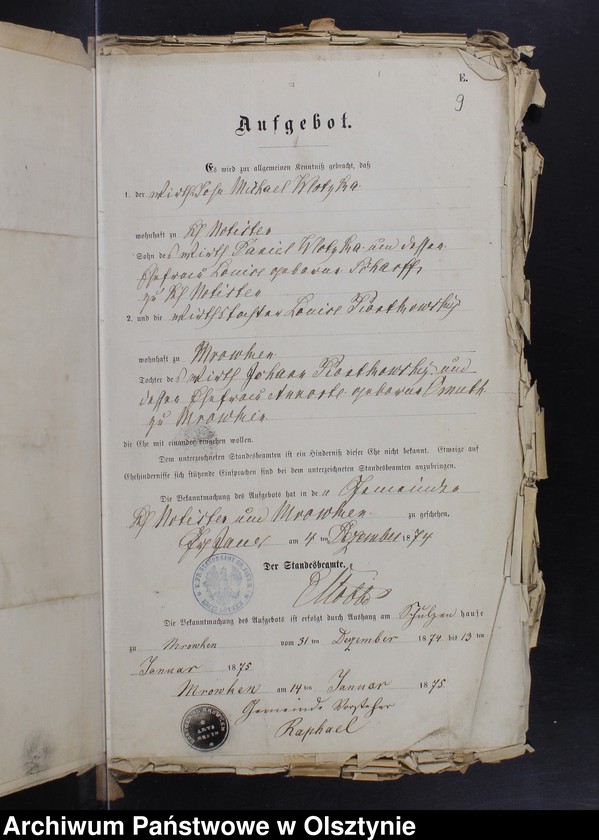 E.
9
Aufgebot.
Es wird zur allgemeinen Kenntniß gebracht, daß
1. der Wirthssohn Michael Klotzka
wohnhaft zu Kl Notisten
Sohn des Wirth Daniel Klotzka und dessen
Ehefrau Louise geborne Scharoff
zu Kl Notisten
2. und die Wirthstochter Louise
wohnhaft zu Mrowken
Tochter des Wirth Johann und
dessen Ehefrau geborne
zu Mrowken
die Ehe mit einander eingehen wollen.
Dem unterzeichneten Standesbeamten ist ein Hinderniß dieser Ehe nicht bekannt. Etwaige auf
Ehehindernisse sich stützende Einsprachen sind bei dem unterzeichneten Standesbeamten anzubringen.
Die Bekanntmachung des Aufgebots hat in den Gemeinden
Kl Notisten und Mrowken zu geschehen.
am 4 ten Dezember 1874
Der Standesbeamte.
Die Bekanntmachung des Aufgebots ist erfolgt durch Aushang am Schulzen hause
zu Mrowken vom 31 ten Dezember 1874 bis 13 ten
Januar 1875
Mrowken am 14 ten Januar 1875.
Gemeinde Vorsteher
Raphael
Archiwum Państwowe w Olsztynie